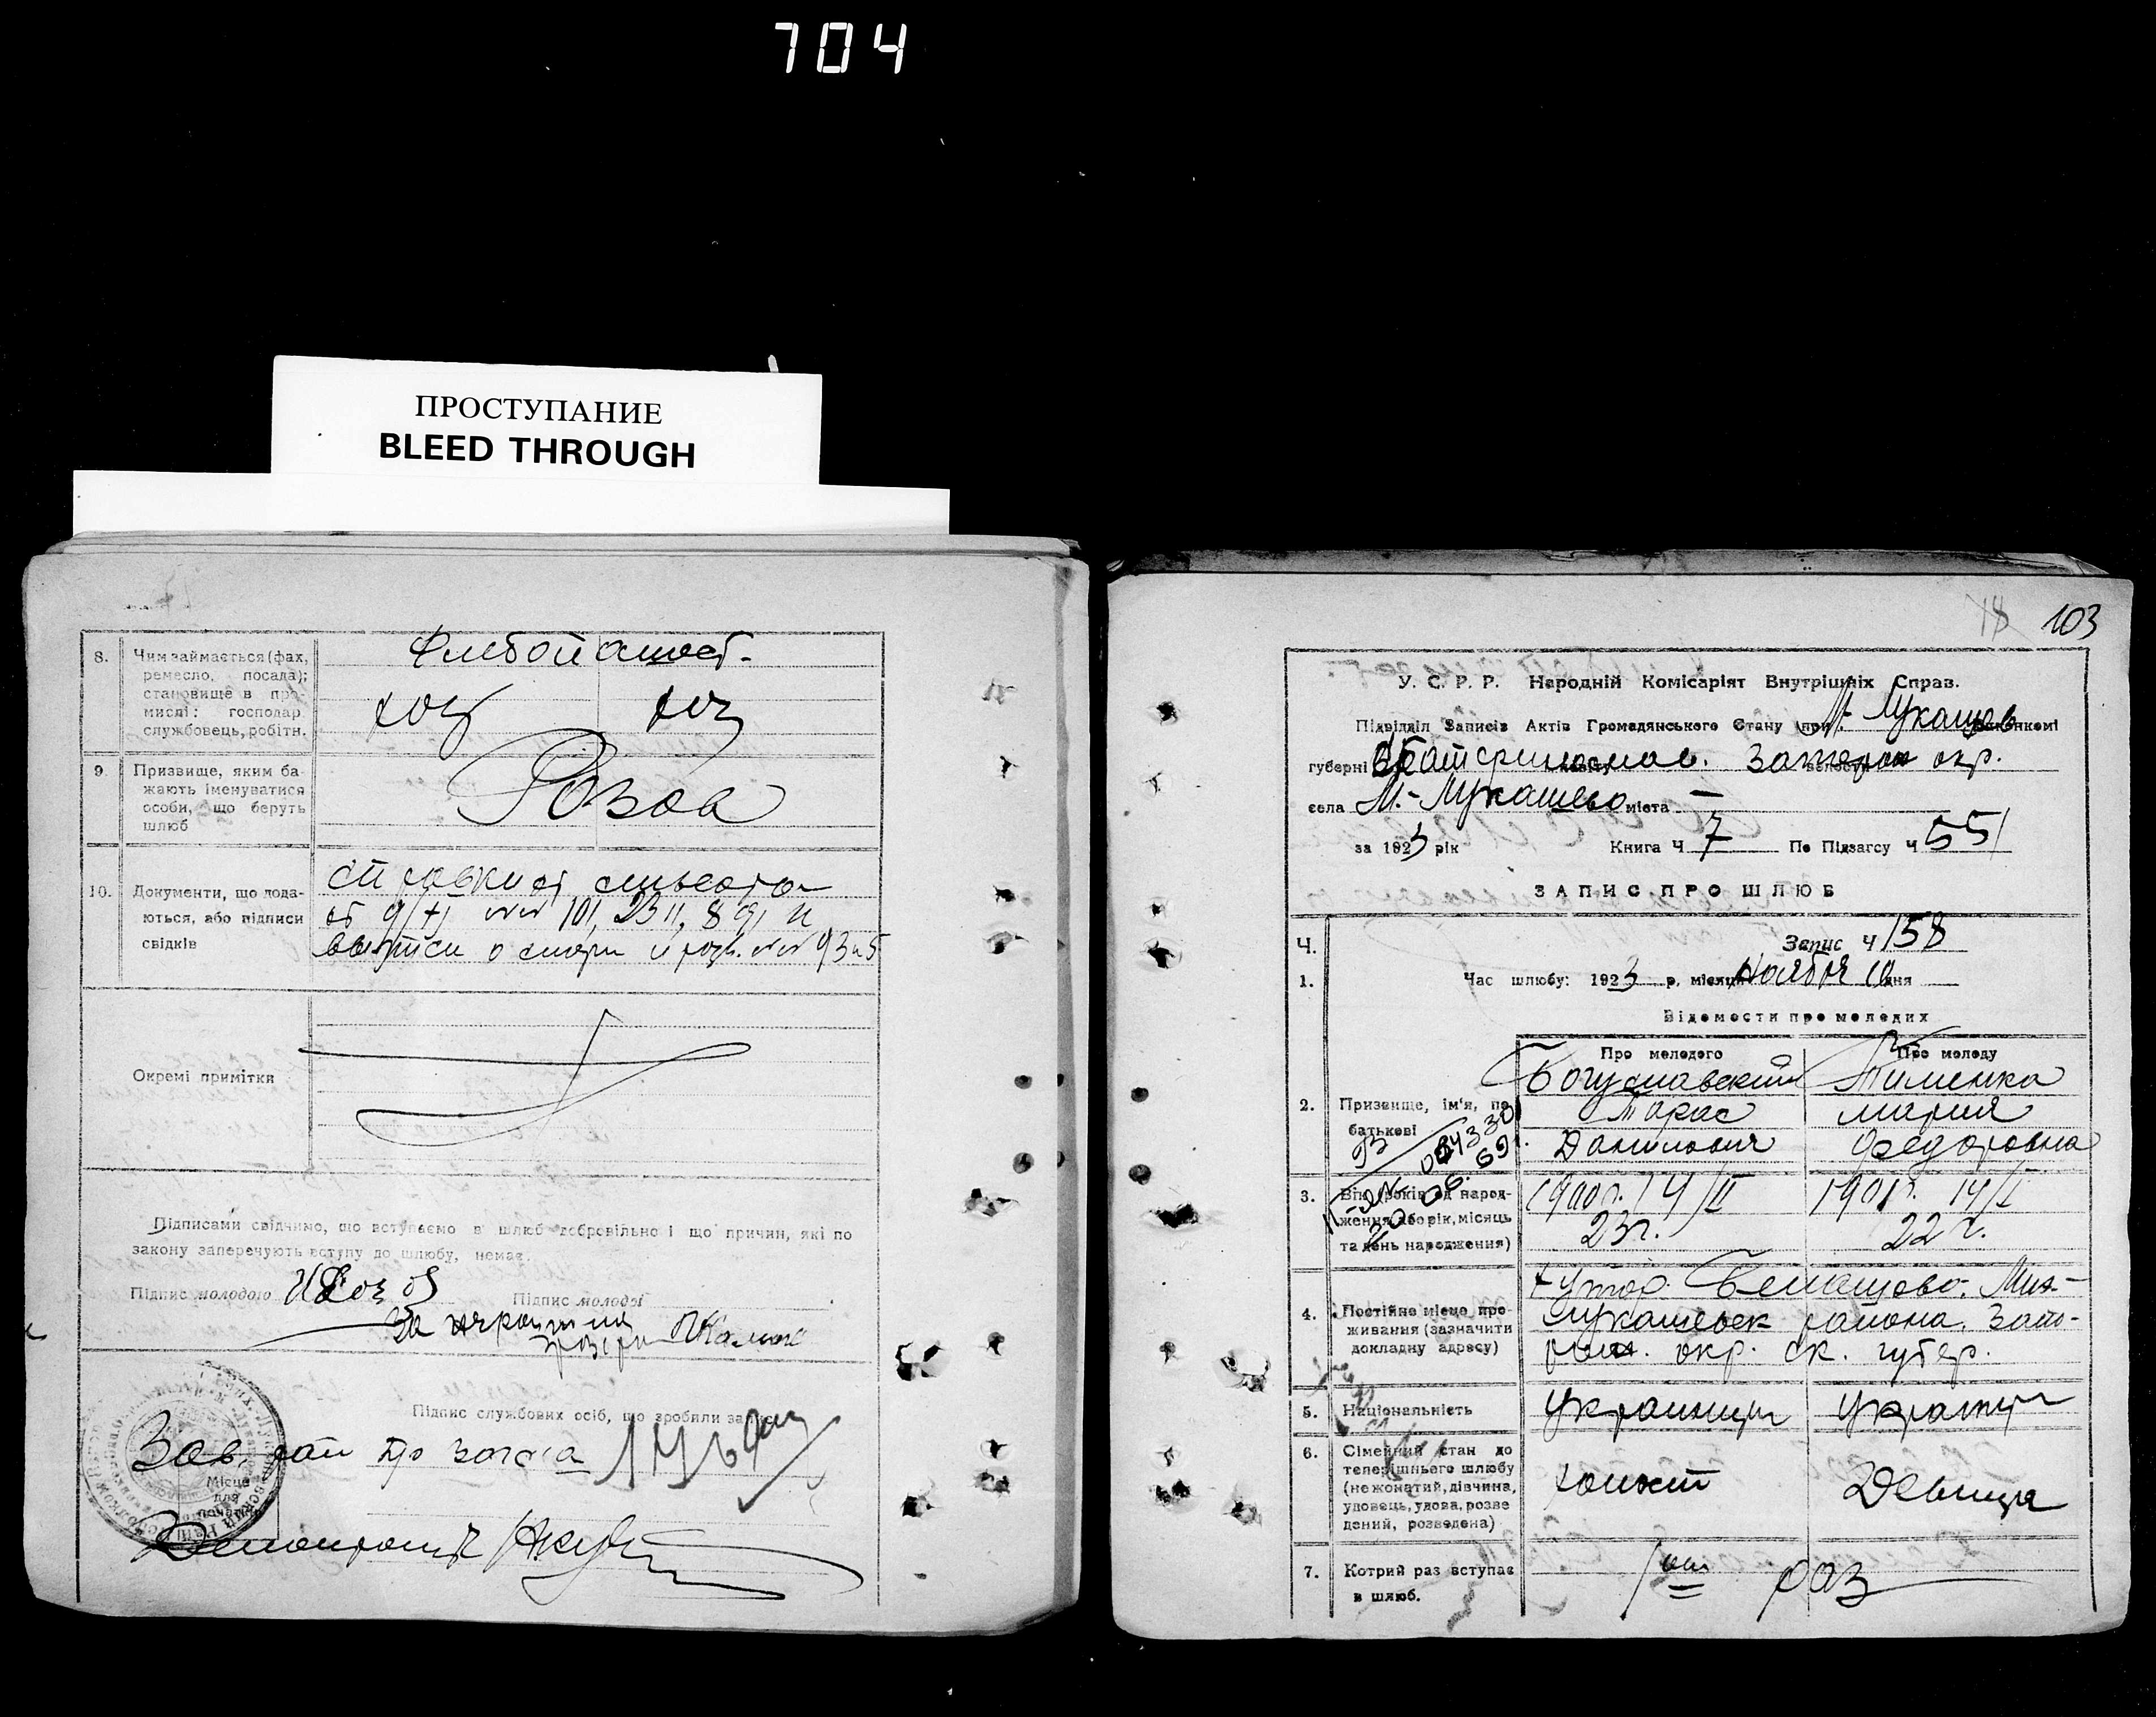 704
ПРОСТУПАНИЕ
BLEED THROUGH
8. Чим займається (фах,
ремесло, посада);
становище в про-
мислі: господар
службовець, робітн.
хоз хоз
9. Призвище, яким ба-
жають іменуватися
особи, що беруть
шлюб
Розов
10. Документи, що дода-
ються, або підписи
свідків
Окремі примітки
Підписами свідчимо, що вступаємо в шлюб добровільно і що причин, які по
закону заперечують вступу до шлюбу, немає.
Підпис молодого
Підпис молодої
За
Підпис службових осіб, що зробили запис
Зав.
Місце
для
печатки
103
У. С. Р. Р. Народній Комісаріят Внутрішніх Справ.
Підвідділ Записів Актів Громадянського Стану при М.-Лукашев виконкомі
губерні Екатеринослав. Запорож окр.
села М.-Лукашево міста –
за 1923 рік Книга Ч 7 По Підзагсу Ч 55
ЗАПИС ПРО ШЛЮБ
Ч. Запис Ч 158
1. Час шлюбу: 1923 р. місяця Ноября 10 дня
Відомости про молодих
Про молодого Про молоду
2. Призвище, ім'я, по
батькові
Богуславский
Тарас Мария
Данилович Федоровна
3. Вік (років од народ-
ження, або рік, місяць
та день народження)
1900г. 14/II 1901г. 14/I
23г. 22 г.
4. Постійне місце про-
живання (зазначити
докладну адресу)
хутор Мих-
Лукашевск района. Запо-
рож. окр. Ек. губер.
5. Національність
Украинцы
6. Сімейний стан до
теперішнього шлюбу
(не жонатий, дівчина,
удовець, удова, розве
дений, розведена)
холост Девица
7. Котрий раз вступає
в шлюб.
1ый раз